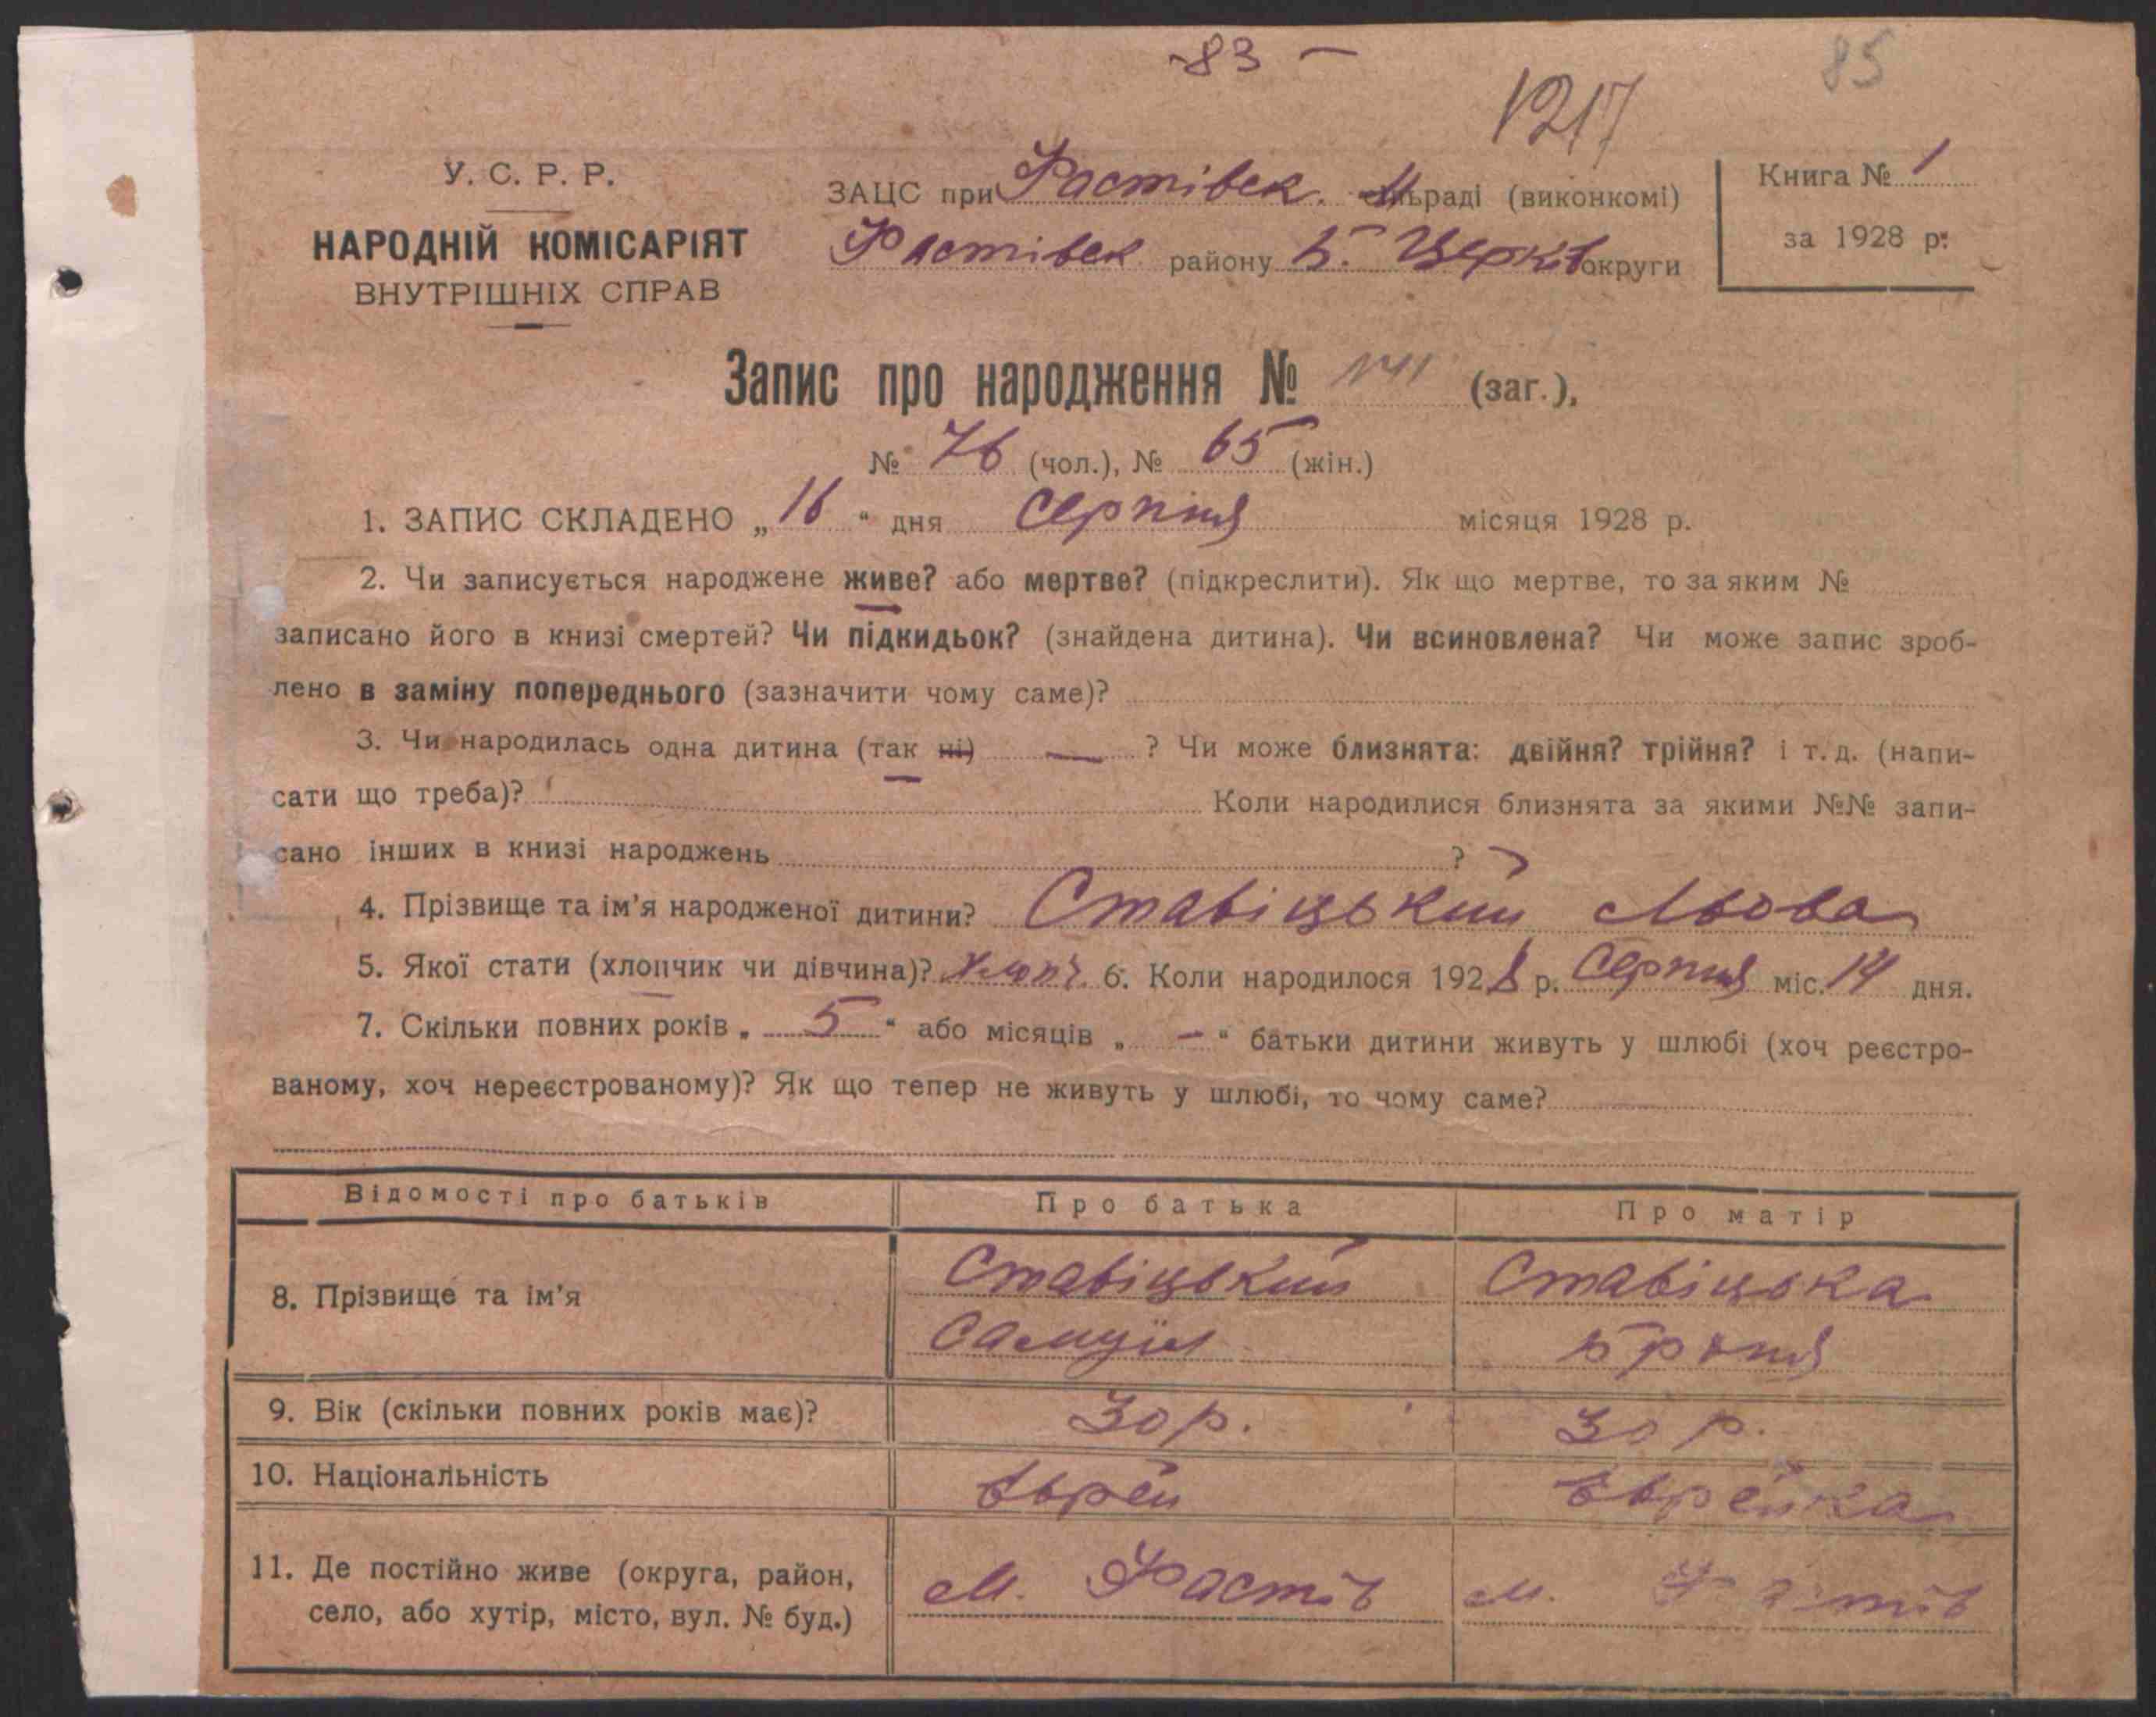 83 -
85
1217
У. С. Р. Р.
НАРОДНІЙ КОМІСАРІЯТ
ВНУТРІШНІХ СПРАВ
ЗАЦС при Фастівск. М ьраді (виконкомі)
Фастівск району Б. Церків округи
Книга № 1
за 1928 р.
Запис про народження № 141 (заг.),
№ 76 (чол.), № 65 (жін.)
1. ЗАПИС СКЛАДЕНО „16“ дня Серпня місяця 1928 р.
2. Чи записується народжене живе? або мертве? (підкреслити). Як що мертве, то за яким №
записано його в книзі смертей? Чи підкидьок? (знайдена дитина). Чи всиновлена? Чи може запис зроб-
лено в заміну попереднього (зазначити чому саме)?
3. Чи народилась одна дитина (так ні) — ? Чи може близнята: двійня? трійня? і т. д. (напи-
сати що треба)? Коли народилися близнята за якими №№ запи-
сано інших в книзі народжень ?
4. Прізвище та ім’я народженої дитини? Ставіцький Львова
5. Якої стати (хлопчик чи дівчина)? Хлопч. 6. Коли народилося 1928 р. Серпня міс. 14 дня.
7. Скільки повних років „ 5 “ або місяців „ - “ батьки дитини живуть у шлюбі (хоч реєстро-
ваному, хоч нереєстрованому)? Як що тепер не живуть у шлюбі, то чому саме?
Відомості про батьків
Про батька
Про матір
8. Прізвище та ім’я
Ставіцький
Самуїл
Ставіцька
Броня
9. Вік (скільки повних років має)?
30 р.
30 р.
10. Національність
Єврей
Єврейка
11. Де постійно живе (округа, район,
село, або хутір, місто, вул. № буд.)
м. Фастів
м. Фастів